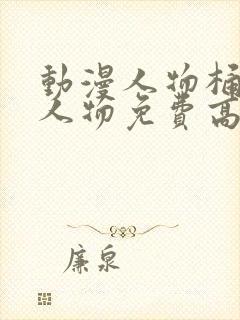 動漫人物桶
人物免費高
廉泉